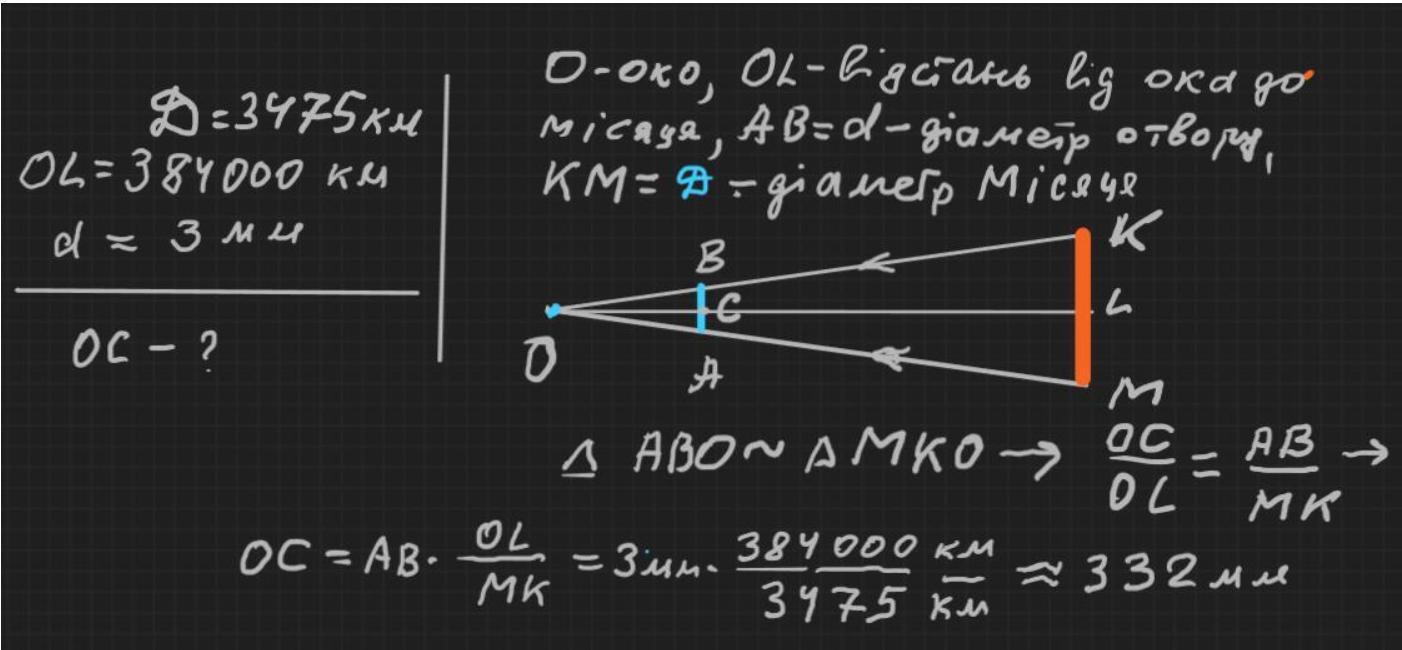 Д=3475км
OL=384000 км
d = 3 мм
OC - ?
О-око, OL-відстань від ока до
місяця, AB=d-діаметр отвору,
KM= Д -діаметр Місяця
B
K
C
L
O
A
M
Δ ABO ~ Δ MKO → OC/OL = AB/MK →
OC = AB · OL/MK = 3мм · 384000/3475 км/км ≈ 332 мм